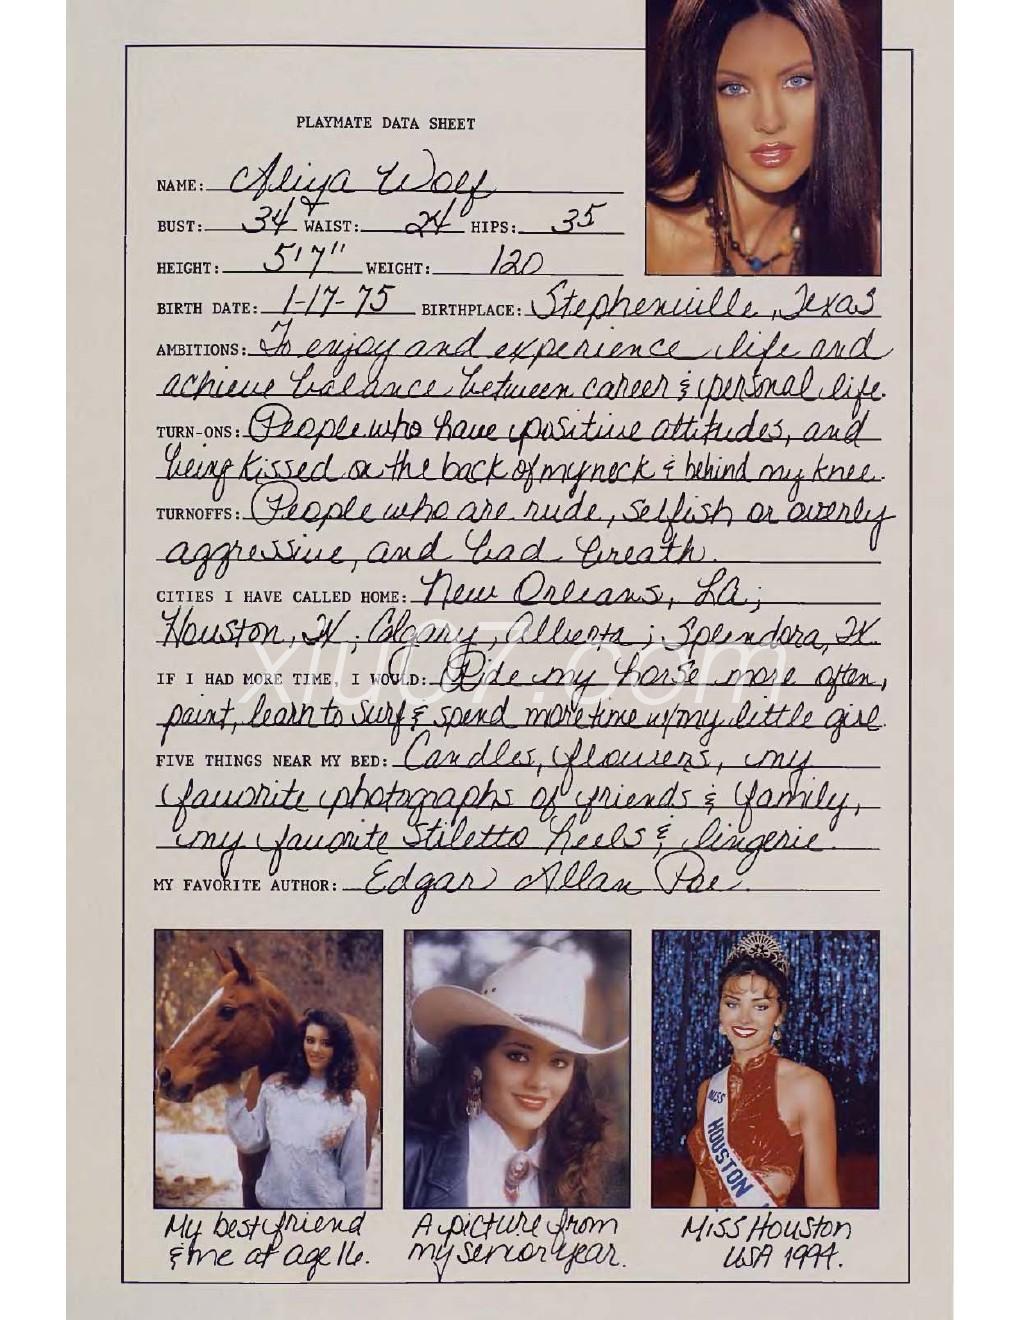 PLAYMATE DATA SHEET
NAME: Aliya Wolf
BUST: 34 WAIST: 24 HIPS: 35
HEIGHT: 5'7" WEIGHT: 120
BIRTH DATE: 1-17-75 BIRTHPLACE: Stephenville, Texas
AMBITIONS: To enjoy and experience life and
achieve balance between career & personal life.
TURN-ONS: People who have positive attitudes, and
being kissed on the back of my neck & behind my knee.
TURNOFFS: People who are rude, selfish or overly
aggressive, and bad breath.
CITIES I HAVE CALLED HOME: New Orleans, LA;
Houston, TX; Calgary, Alberta; Splendora, TX.
IF I HAD MORE TIME, I WOULD: Ride my horse more often,
paint, learn to surf & spend more time w/my little girl.
FIVE THINGS NEAR MY BED: Candles, flowers, my
favorite photographs of friends & family,
my favorite stiletto heels & lingerie.
MY FAVORITE AUTHOR: Edgar Allan Poe.
xiu07.com
MISS HOUSTON
My best friend
& me at age 16.
A picture from
my senior year.
Miss Houston
USA 1994.